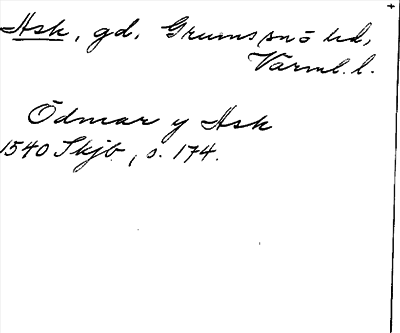 Ask, gd, Grums sn o hd,
Värml. l.
Ödmar y Ask
1540 Skjb, s. 174.